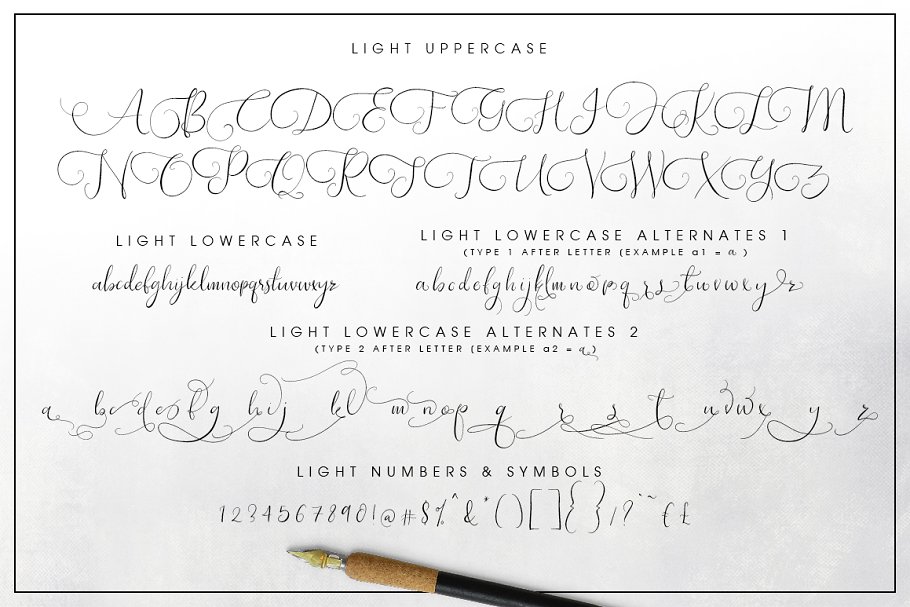 LIGHT UPPERCASE
A B C D E F G H I J K L M
N O P Q R S T U V W X Y Z
LIGHT LOWERCASE
abcdefghijklmnopqrstuvwxyz
LIGHT LOWERCASE ALTERNATES 1
(TYPE 1 AFTER LETTER (EXAMPLE a1 = a )
a b c d e f g h i j k l m n o p q r s t u v w x y z
LIGHT LOWERCASE ALTERNATES 2
(TYPE 2 AFTER LETTER (EXAMPLE a2 = a)
a b c d e f g h i j k l m n o p q r s t u v w x y z
LIGHT NUMBERS & SYMBOLS
1234567890!@#$%^&*()[]{}/?¨~€£